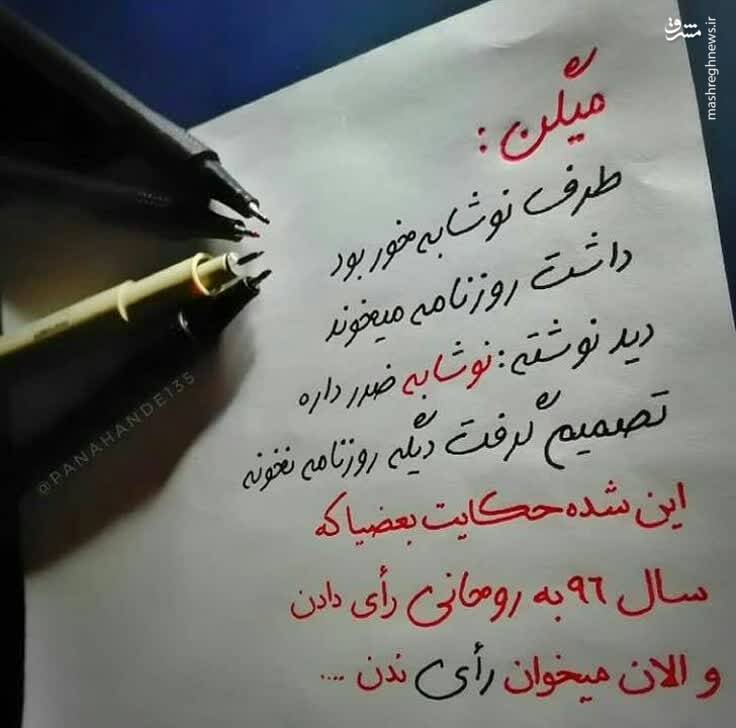 مشرق
mashreghnews.ir
میگن :
طرف نوشابه خور بود
داشت روزنامه میخوند
دید نوشته : نوشابه ضرر داره
تصمیم گرفت دیگه روزنامه نخونه
این شده حکایت بعضیا که
سال ۹۶ به روحانی رأی دادن
و الان میخوان رأی ندن ....
@PANAHANDE135